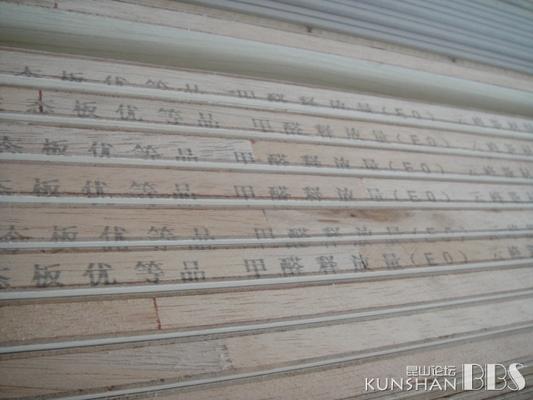 态板优等品 甲醛释放量(E0) 云峰
态板优等品 甲醛释放量(E0) 云峰
态板优等品 甲醛释放量(E0) 云峰
态板优等品 甲醛释放量(E0) 云峰
态板优等品 甲醛释放量(E0) 云峰
态板优等品 甲醛释放量(E0) 云峰
昆山论坛
KUNSHAN BBS